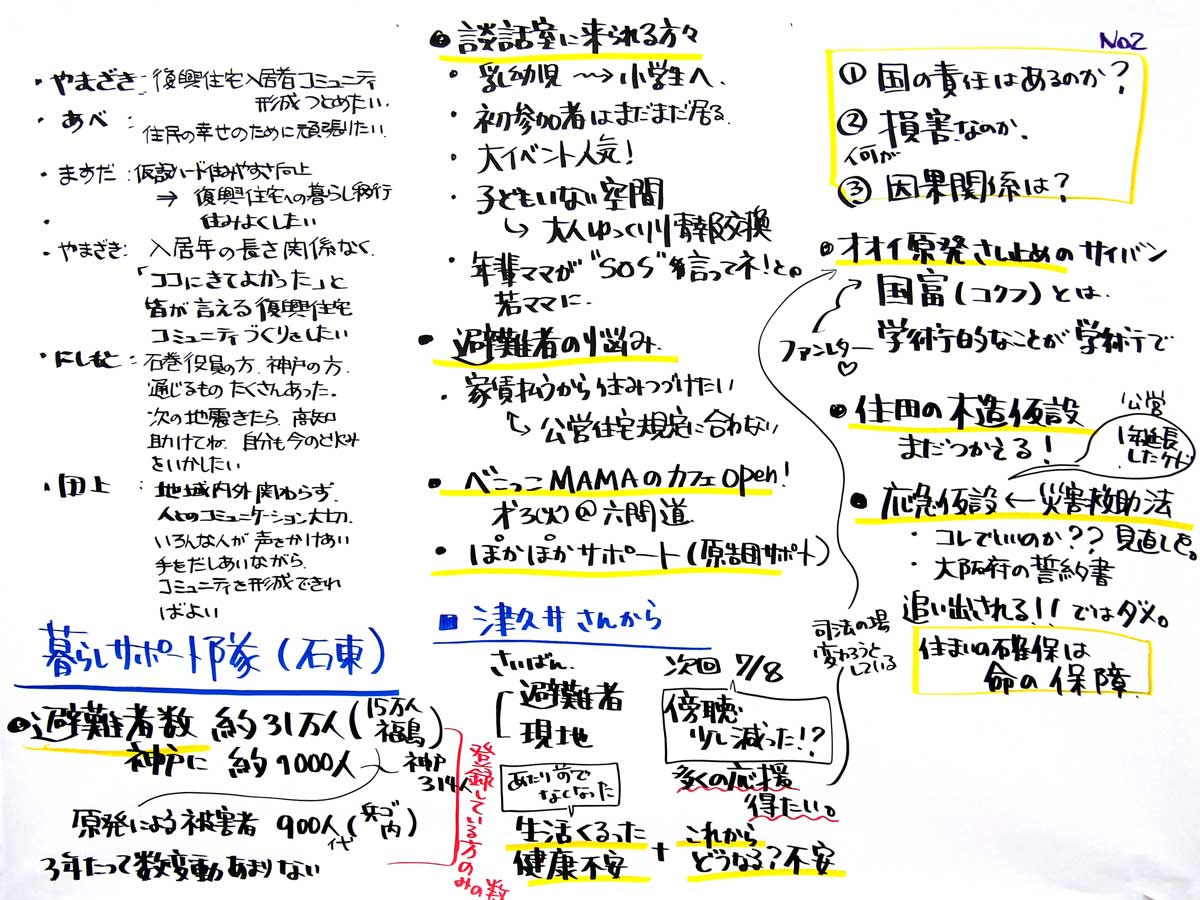 No2
・やまざき：復興住宅入居者コミュニティ
形成つとめたい。
・あべ：
住民の幸せのために頑張りたい。
・ますだ：仮設ハード住みやすさ向上
⇒ 復興住宅への暮らし移行
住みよくしたい
・
・やまざき：入居年の長さ関係なく、
「ココにきてよかった」と
皆が言える復興住宅
コミュニティづくりをしたい
・にしもと：石巻役員の方、神戸の方、
通じるもの たくさんあった。
次の地震きたら、高知
助けてね。自分も今のとりくみ
をいかしたい
・田上：地域内外関わらず、
人とのコミュニケーション大切、
いろんな人が声をかけあい
手をだしあいながら、
コミュニティを形成できれ
ばよい
暮らしサポート隊（石東）
●避難者数 約31万人（15万人
福島）
神戸に 約1000人
神戸
314人
原発による被害者 900人（兵ゴ
内）
イヤ
3年たって数変動あまりない
登録している方の
みの数
●談話室に来られる方々
・乳幼児 → 小学生へ、
・初参加者はまだまだ居る。
・大イベント人気！
・子どもいない空間
↳ 大人ゆっくり情報交換
・年輩ママが“SOS”を言ってネ！と。
若ママに、
●避難者の悩み、
・家賃払うから住みつづけたい
↳ 公営住宅規定に合わない
●べこっこMAMAのカフェopen！
オ3(火)@六間道
●ぽかぽかサポート（原告団サポート）
■津久井さんから
さいばん、
避難者
現地
次回 7/8
傍聴
少し減った!?
多くの応援
得たい。
あたり前で
なくなった
生活くるった
健康不安
+
これから
どうなる？不安
① 国の責任はあるのか？
② 損害なのか、
何が
③ 因果関係は？
●オオイ原発さし止めのサイバン
国富（コクフ）とは、
学術的なことが 学術で
ファンレター♡
●住田の木造仮設
まだつかえる！
公営
1年延長
したケド
●応急仮設 ← 災害救助法
・コレでいいのか？？ 見直しを。
・大阪府の誓約書
追い出される！！ではダメ。
住まいの確保は
命の保障
司法の場
変わろうと
している